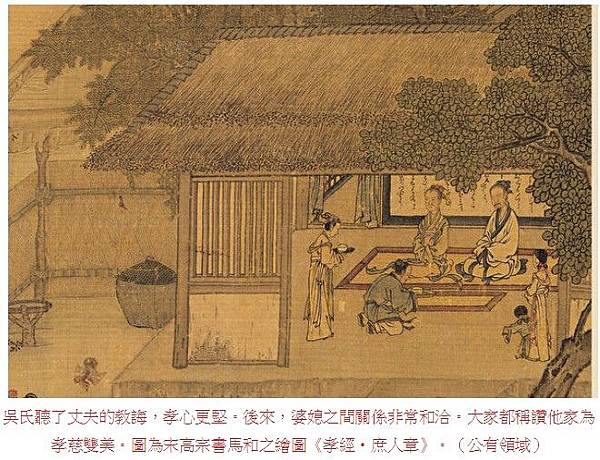 吳氏聽了丈夫的教誨，孝心更堅。後來，婆媳之間關係非常和洽。大家都稱讚他家為
孝慈雙美。圖為宋高宗書馬和之繪圖《孝經‧庶人章》。（公有領域）